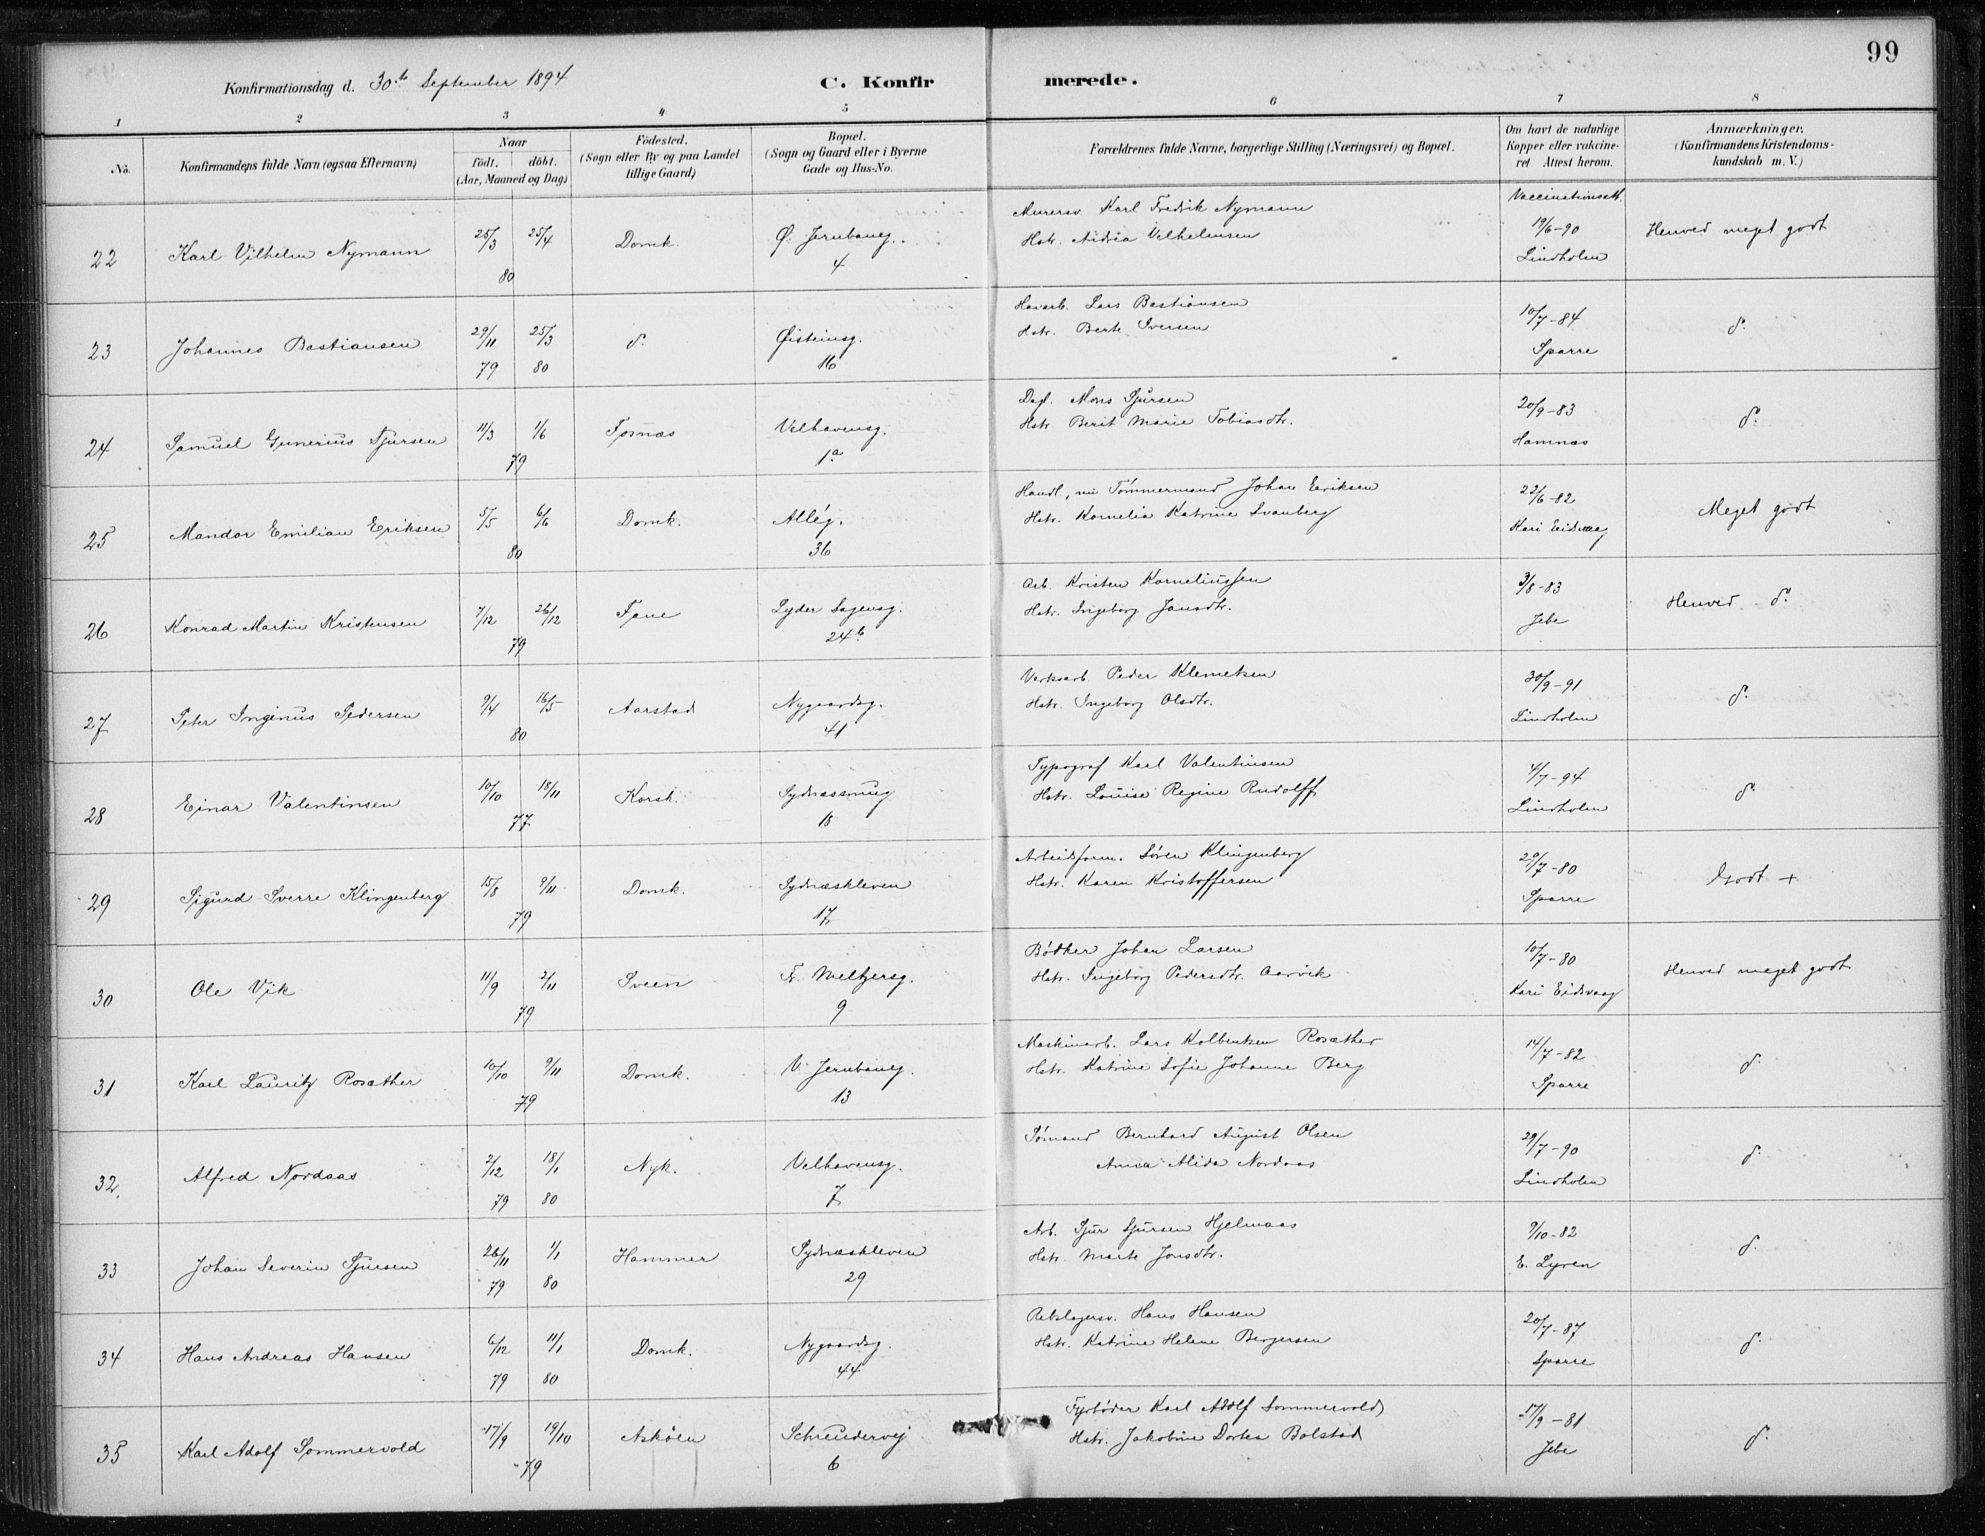 99
Konfirmationsdag d. 30.te September 1894
C. Konfirmerede.
1 2 3 4 5 6 7 8
No.
Konfirmandens fulde Navn (ogsaa Efternavn)
Naar
födt. döbt.
(Aar, Maaned og Dag)
Födested.
(Sogn eller By og paa Landet
tillige Gaard)
Bopæl.
(Sogn og Gaard eller i Byerne
Gade og Hus-No.
Forældrenes fulde Navne, borgerlige Stilling (Næringsvei) og Bopæl.
Om havt de naturlige
Kopper eller vakcine-
ret Attest herom.
Anmærkninger.
(Konfirmandens Kristendoms-
kundskab m. V.)
22 Karl Vilhelm Nymann 25/3 25/4 80 Domk. Ø. Jernbaneg. 4
Murersv. Karl Fredrik Nymann
Hstr. Andrea Vilhelmsen
Vaccinationsatt. 19/6-90 Lindholm
Henved meget godt
23 Johannes Bastiansen 29/11 79 25/3 80 d. Øisteinsg. 16
Havarb. Lars Bastiansen
Hstr. Berte Iversen
10/7-84 Sparre
d.
24 Samuel Gunerius Sjursen 11/3 1/6 79 Fosnæs Velhavensg. 1a
Dagl. Mons Sjursen
Hstr. Berit Marie Tobiasdtr.
20/9-83 Hamnæs
d.
25 Mandor Emilian Eriksen 5/5 6/6 80 Domk. Alleg. 36
Handl., nu Tømmermand Johan Eriksen
Hstr. Kornelia Katrine Svanberg
22/6-82 Kari Eidsvaag
Meget godt
26 Konrad Martin Kristensen 7/12 26/12 79 Fane Lyder Sagensg. 24b
Arb. Kristen Korneliussen
Hstr. Ingeborg Jansdtr.
3/8-83 Jebe
Henved d.
27 Peter Inginus Pedersen 9/4 16/5 80 Aarstad Nygaardsg. 41
Verksarb. Peder Klemetsen
Hstr. Ingeborg Olsdtr.
30/9-91 Lindholm
d.
28 Einar Valentinsen 10/10 18/11 77 Korsk. Sydnæssmug 18
Typograf Karl Valentinsen
Hstr. Louise Regine Rudolff
4/7-94 Lindholm
d.
29 Sigurd Sverre Klingenberg 15/8 9/11 79 Domk. Sydnæskleven 17
Arbeidsform. Søren Klingenberg
Hstr. Karen Kristoffersen
29/7-80 Sparre
Godt +
30 Ole Vik 11/9 2/11 79 Sveen Fr. Meltzersg. 9
Bødker Johan Larsen
Hstr. Ingeborg Pedersdtr. Aarvik
10/7-80 Kari Eidsvaag
Henved meget godt
31 Karl Lauritz Rosæther 10/10 9/11 79 Domk. V. Jernbaneg. 13
Maskinarb. Lars Kolbentsen Rosæther
Hstr. Katrine Sofie Johanne Berg
14/7-82 Sparre
d.
32. Alfred Nordaas 2/12 79 18/1 80 Nyk. Velhavensg. 7
Sømand Bernhard August Olsen
Anna Alida Nordaas
29/7-90 Lindholm
d.
33 Johan Severin Sjursen 26/11 79 1/1 80 Hammer Sydnæskleven 29
Arb. Sjur Sjursen Hjelmaas
Hstr. Marte Jonsdtr.
9/10-82 E. Lyren
d.
34 Hans Andreas Hansen 6/12 79 11/1 80 Domk. Nygaardsg. 44
Rebslagersv. Hans Hansen
Hstr. Katrine Helene Bergersen
20/7-87 Sparre
d.
35 Karl Adolf Sommervold 17/9 19/10 79 Askøen Schreudervej 6
Fyrbøder Karl Adolf Sommervold
Hstr. Jakobine Dortea Bolstad
17/9-81 Jebe
d.